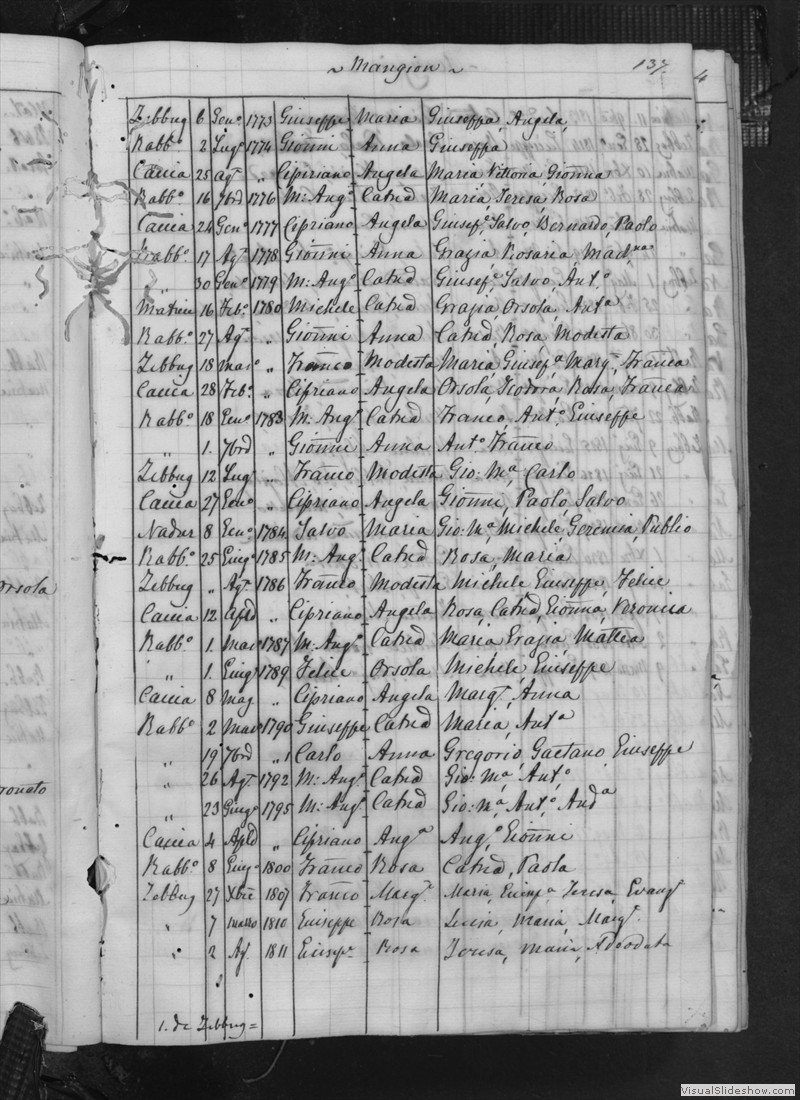 ~ Mangion ~ 137.
4
Zebbug 6 Geno 1773 Giuseppe Maria Giuseppa, Angela,
Rabbo 2 Lugo 1774 Gionni Anna Giuseppa
Caccia 25 Agt „ Cipriano Angela Maria Vittoria, Gionna
Rabbo 16 7bre 1776 M: Ango Catnd Maria, Teresa, Rosa
Caccia 24 Geno 1777 Cipriano Angela Giusefe, Salvo, Bernardo, Paolo
Rabbo 17 Agt 1778 Gionni Anna Grazia, Rosaria, Madna
„ 30 Geno 1779 M: Ango Catnd Giusefe, Salvo, Anto
Matrice 16 Febo 1780 Michele Catnd Grazia, Orsola, Anta
Rabbo 27 Agt „ Gionni Anna Catnd, Rosa, Modesta
Zebbug 18 Maro „ Franco Modesta Maria, Giusefa, Margt, Franca
Caccia 28 Febo „ Cipriano Angela Orsola, Teodora, Rosa, Franca
Rabbo 18 Geno 1783 M: Ango Catnd Franco, Anto, Giuseppe
„ 1. 7bre „ Gionni Anna Anto Franco
Zebbug 12 Lugo „ Franco Modesta Gio: Ma, Carlo
Caccia 27 Geno „ Cipriano Angela Gionni, Paolo, Salvo
Nadur 8 Geno 1784 Salvo Maria Gio: Ma, Michele, Geremia, Publio
Rabbo 25 Giugo 1785 M: Ango Catnd Rosa, Maria
Zebbug „ Agt 1786 Franco Modesta Michele, Giuseppe, Felice
Caccia 12 Aple „ Cipriano Angela Rosa, Catnd, Gionna, Veronica
Rabbo 1. Maro 1787 M: Ango Catnd Maria, Grazia, Mattea
„ 1. Giugo 1789 Felice Orsola Michele, Giuseppe
Caccia 8 Mag „ Cipriano Angela Margt, Anna
Rabbo 2 Maro 1790 Giuseppe Catnd Maria, Anta
„ 19 7bre „ Carlo Anna Gregorio, Gaetano, Giuseppe
„ 26 Agt 1792 M: Ango Catnd Gio: Ma, Anto
„ 23 Giugo 1795 M: Ango Catnd Gio: Ma, Anto, Anda
Caccia 4 Aple „ Cipriano Anga Ango, Gionni
Rabbo 8 Giugo 1800 Franco Rosa Catnd, Paola
Zebbug 27 Xbre 1807 Franco Margt Maria, Giusepa, Teresa, Evangt
„ 7 Marzo 1810 Giuseppe Rosa Lucia, Maria, Margt
„ 2 Agt 1811 Giusepe Rosa Teresa, Maria, Adeodata
1. de Zebbug =
Orsola
VisualSlideshow.com